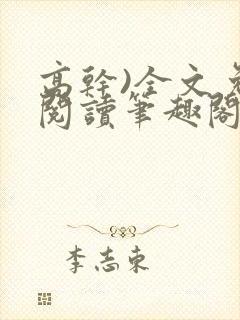 高幹)全文免
閱讀筆趣閣
李志東